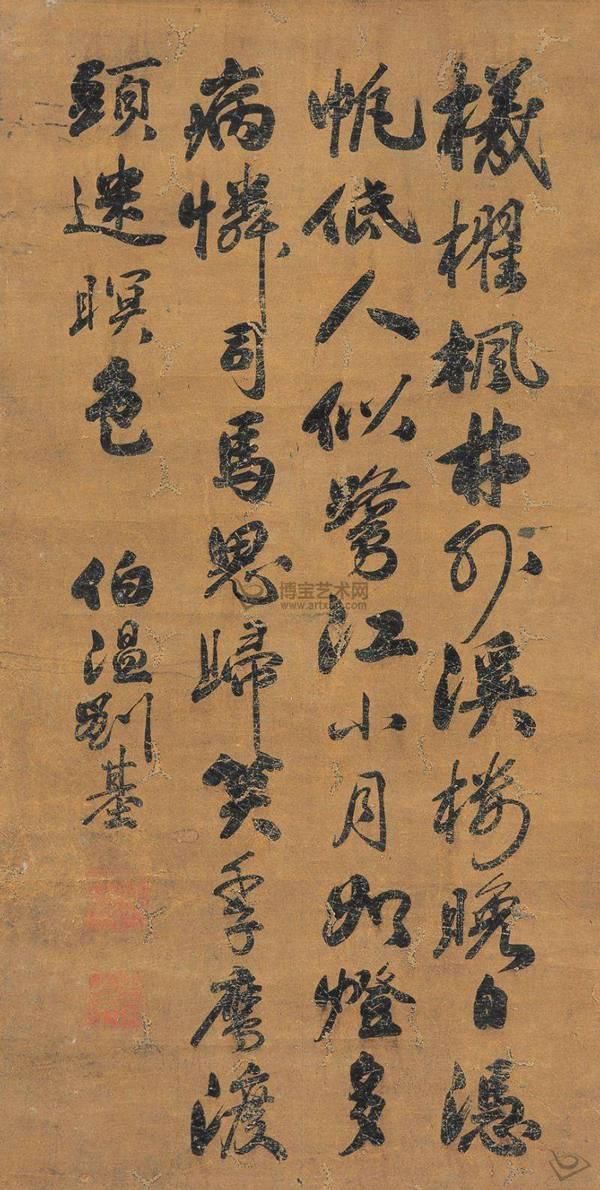 檥櫂楓林外溪樓晚自憑
帆低人似鷺江小月如燈多
病憐司馬思歸笑季鷹渡
頭迷暝色 伯溫劉基
博宝艺术网